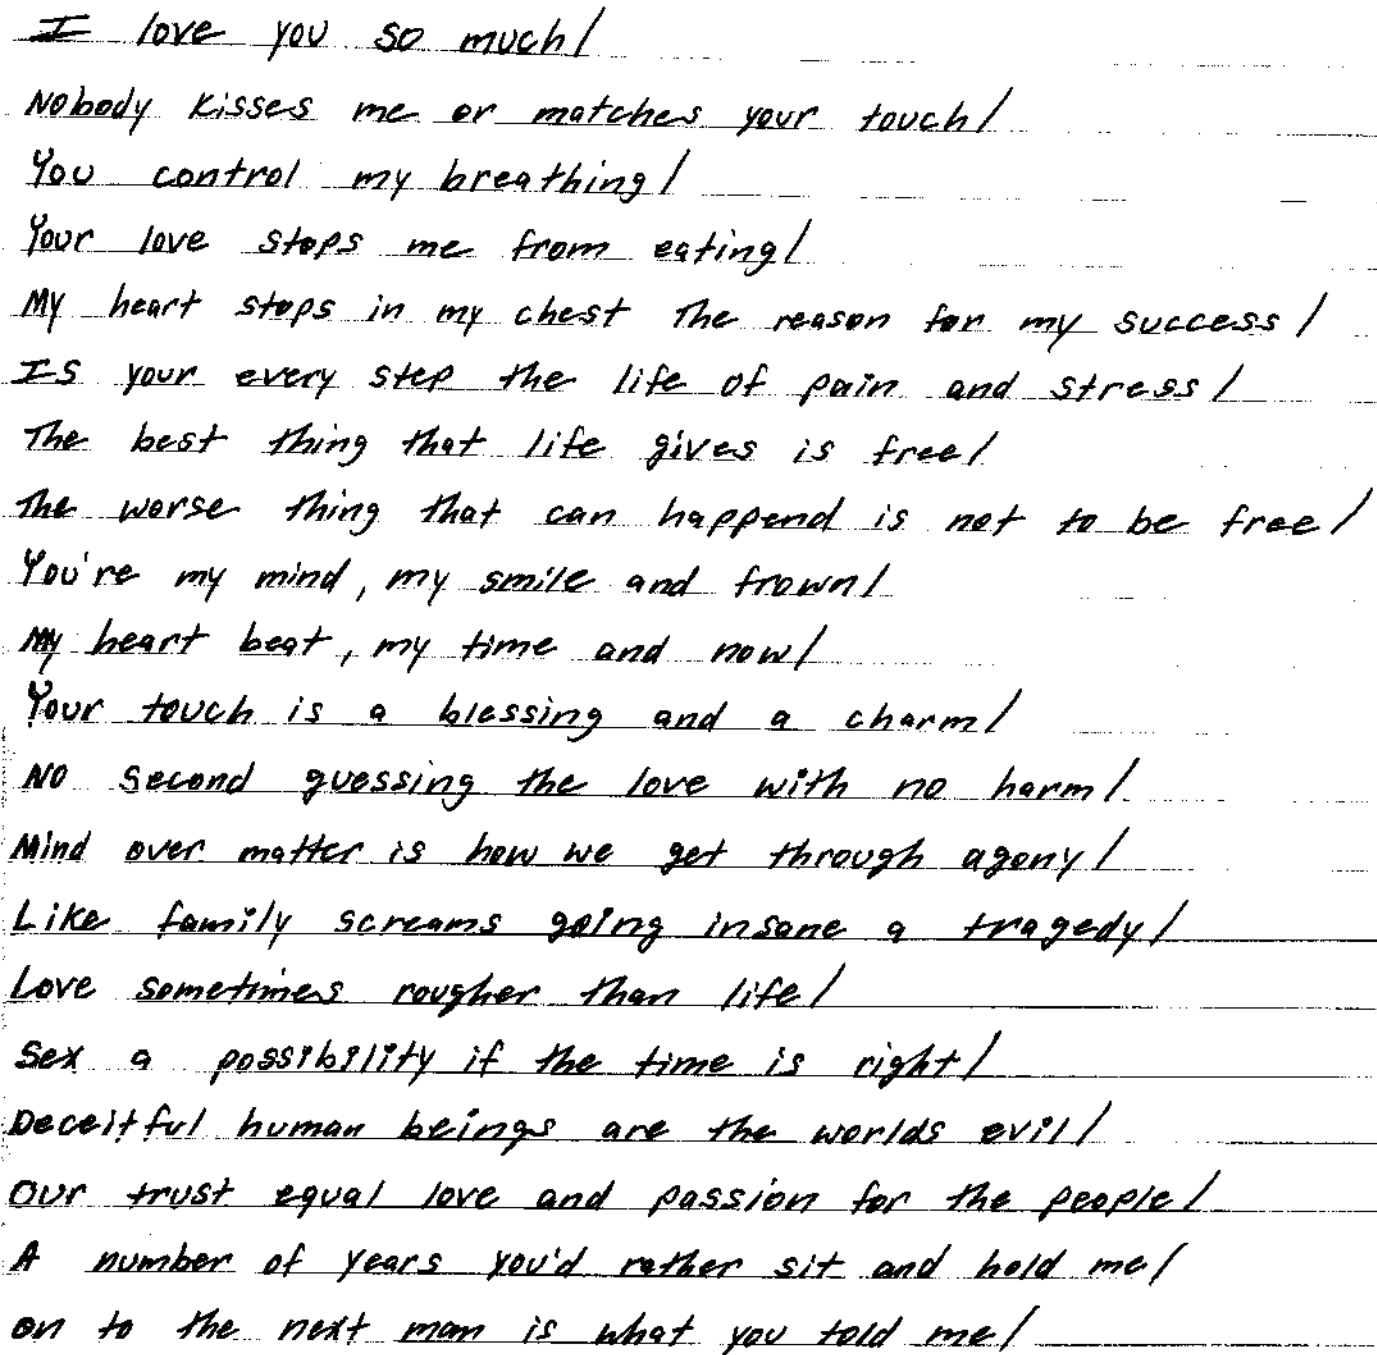 I love you so much/
Nobody kisses me or matches your touch/
You control my breathing/
Your love stops me from eating/
My heart stops in my chest The reason for my success/
Is your every step the life of pain and stress/
The best thing that life gives is free/
The worse thing that can happend is not to be free/
You're my mind, my smile and frown/
My heart beat, my time and now/
Your touch is a blessing and a charm/
No second guessing the love with no harm/
Mind over matter is how we get through agony/
Like family screams going insane a tragedy/
Love sometimes rougher than life/
Sex a possibility if the time is right/
Deceitful human beings are the worlds evil/
Our trust equal love and passion for the people/
A number of years you'd rather sit and hold me/
on to the next man is what you told me/